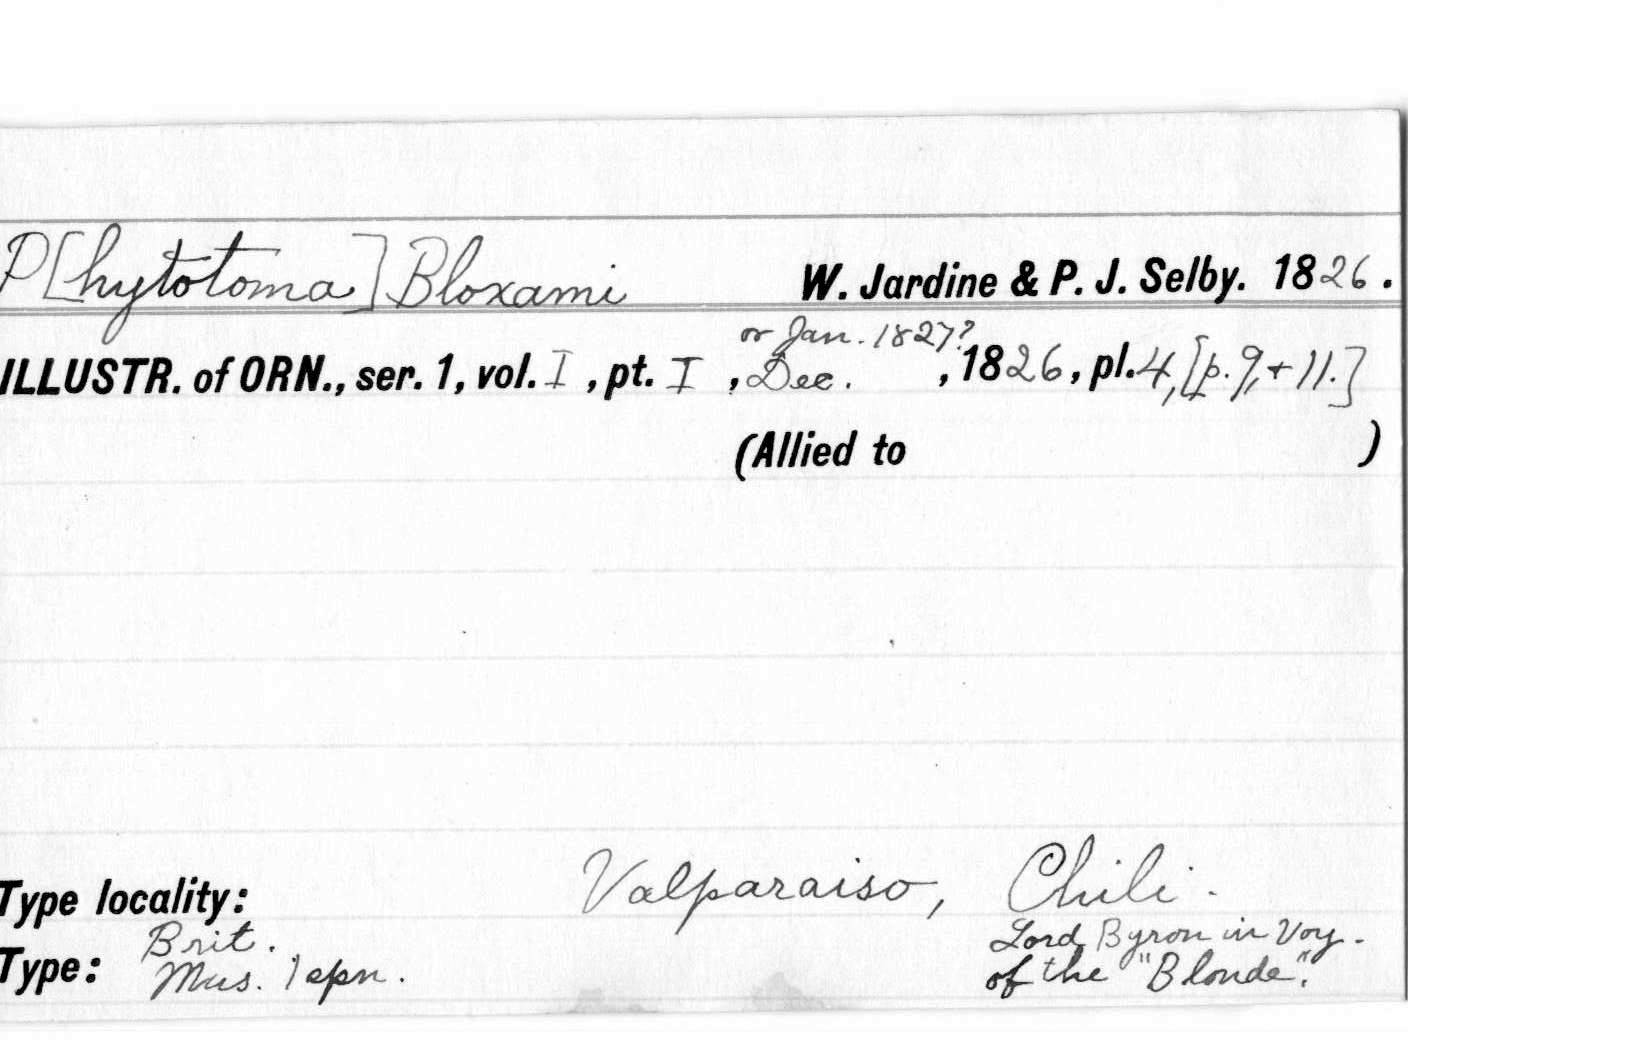 P[hytotoma] Bloxami W. Jardine & P. J. Selby. 1826.
or Jan. 1827?
ILLUSTR. of ORN., ser. 1, vol. I, pt. I, Dec. , 1826, pl. 4, [p. 9, + 11.]
(Allied to )
Type locality: Valparaiso, Chili.
Brit. Lord Byron in Voy.
Type: Mus. 1 spn. of the "Blonde".